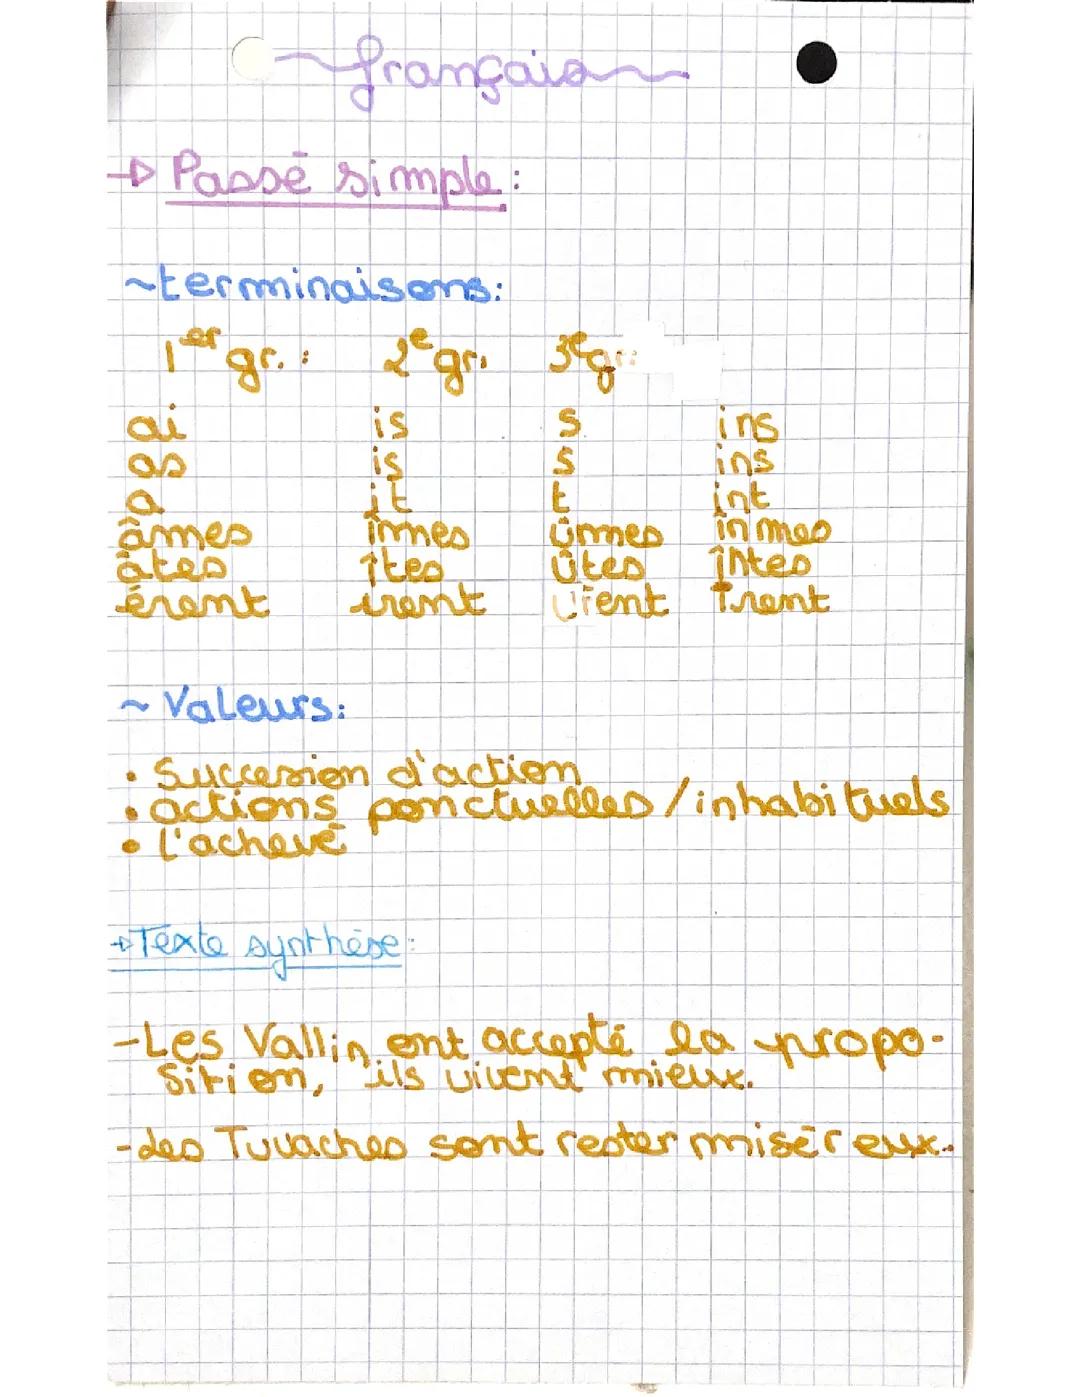 français
→ Passé simple:
~terminaisons:
1er gr. : 2e gr. 3e gr:
ai is s ins
as is s ins
a it t int
âmes îmes ûmes înmes
âtes îtes ûtes întes
èrent irent urent inrent
~ Valeurs:
• Succession d'action
• actions ponctuelles / inhabituels
• l'achevé
→ Texte synthèse:
-Les Vallin ont accepté la propo-
sition, ils vivent mieux.
-les Tuvaches sont rester miséreux.